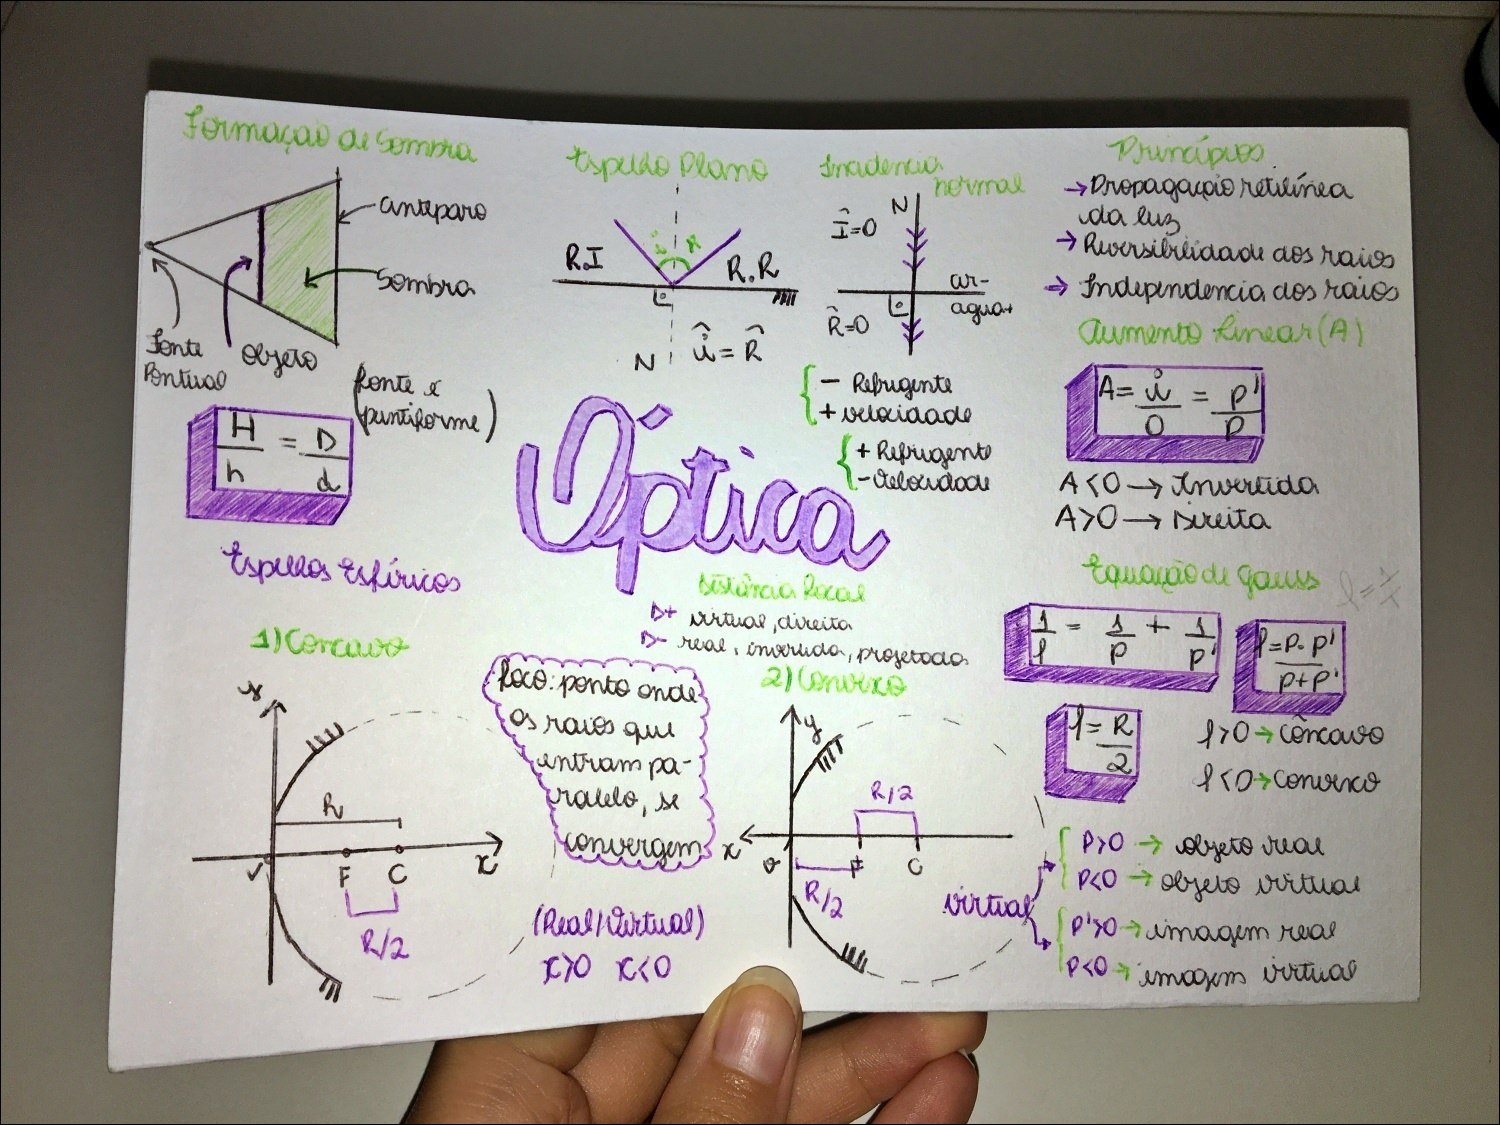 Formação de Sombra
anteparo
Sombra
Fonte
Pontual
Objeto
(fonte é
puntiforme)
H/h = D/d
Espelho Plano
i R
R.I
R.R
N
î = R̂
Incidencia
normal
N
Î=0
ar-
agua+
R̂=0
- Refrigente
+ velocidade
+ Refrigente
- Velocidade
Princípios
→ Propagação retilínea
da luz
→ Reversibilidade dos raios
→ Independencia dos raios
Aumento Linear (A)
A = i/O = p'/p
A<0 → Invertida
A>0 → Direita
Óptica
Espelhos Esféricos
1) Concavo
y
R
V
F
C
x
R/2
Distância Focal
D+ virtual, direita
D- real, invertida, projetada
foco: ponto onde
os raios que
entram pa-
ralelo, se
convergem
(Real/Virtual)
x>0 x<0
2) Convexo
y
R/2
x
F
C
R/2
Equação de Gauss
1/f = 1/p + 1/p'
f = p.p'/p+p'
f = R/2
f>0 → Côncavo
f<0 → Convexo
virtual
P>0 → objeto real
P<0 → objeto virtual
P'>0 → imagem real
P<0 → imagem virtual